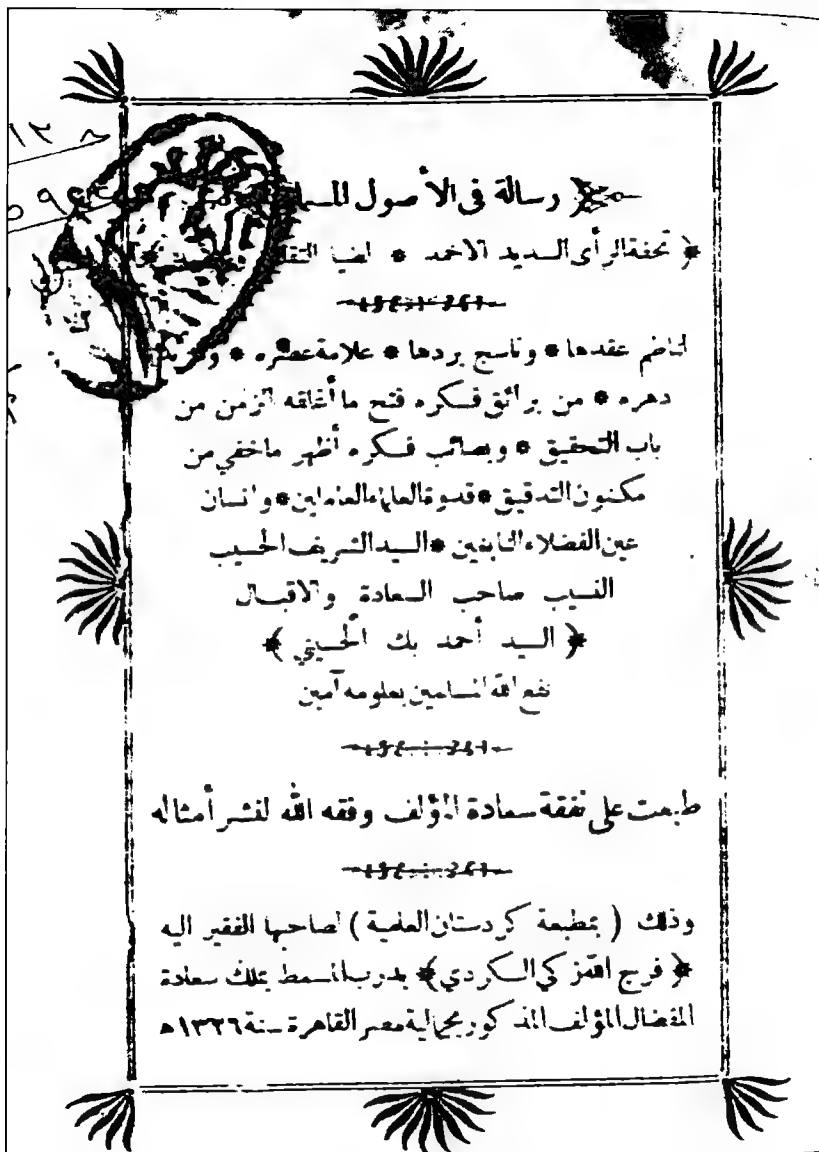 رسالة في الأصول
﴿ تحفة الرأى السديد الاحمد *
لناظم عقدها * وناسج بردها * علامة عصره *
دهره * من برائق فكره فتح ما أغلقه الزمن من
باب التحقيق * وبصائب فكره أظهر ماخفي من
مكنون التدقيق * قدوة العلماء العاملين * وانسان
عين الفضلاء النابغين * السيد الشريف الحسيب
النسيب صاحب السعادة والاقبال
﴿ السيد أحمد بك الحسيني ﴾
نفع الله المسلمين بعلومه آمين
طبعت على نفقة سعادة المؤلف وفقه الله لنشر أمثاله
وذلك ( بمطبعة كردستان العلمية ) لصاحبها الفقير اليه
﴿ فرج الله زكي الكردي ﴾ بدرب المسمط بملك سعادة
المفضال المؤلف المذكور بجمالية مصر القاهرة سنة ١٣٢٦ه